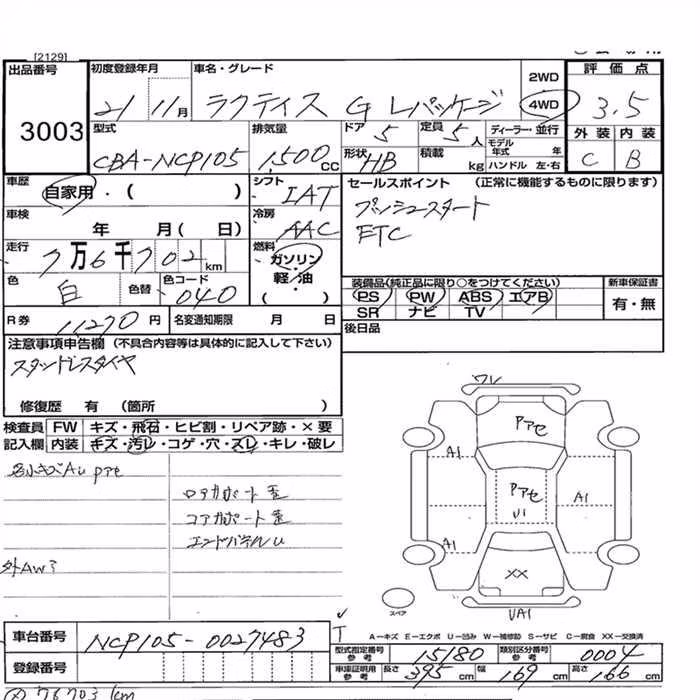 [2129]
出品番号 初度登録年月 車名・グレード 2WD 評価点
3003 21 11月 ラクティス G Lパッケージ 4WD 3.5
型式 排気量 ドア 5 定員 5人 ディーラー・並行 外装 内装
CBA-NCP105 1,500cc 形状 HB 積載 kg モデル年式 年 ハンドル 左・右 C B
車歴 自家用・( ) シフト IAT セールスポイント (正常に機能するものに限ります)
車検 年 月( 日) 冷房 AAC プッシュスタート
ETC
走行 7万6千702km 燃料 ガソリン・軽油 ( )
色 白 色替 色コード 040
装備品(純正品に限り○をつけてください) 新車保証書
PS PW ABS エアB 有・無
SR ナビ TV
R券 11270円 名変通知期限 月 日 後日品
注意事項申告欄 (不具合内容等は具体的に記入して下さい)
スタッドレスタイヤ
修復歴 有 (箇所 )
検査員 FW キズ・飛石・ヒビ割・リペア跡・×要
記入欄 内装 キズ・汚レ・コゲ・穴・スレ・キレ・破レ
Pアセ
A1
Pアセ
A1
A1
XX
スペア
A…キズ E…エクボ U…凹み W…補修跡 S…サビ C…腐食 XX…交換済
車台番号 NCP105-0027483
型式指定番号 参考 15180 類別区分番号 参考 0004
登録番号 車庫証明用 参考 長さ 395cm 幅 169cm 高さ 166cm
76703 km